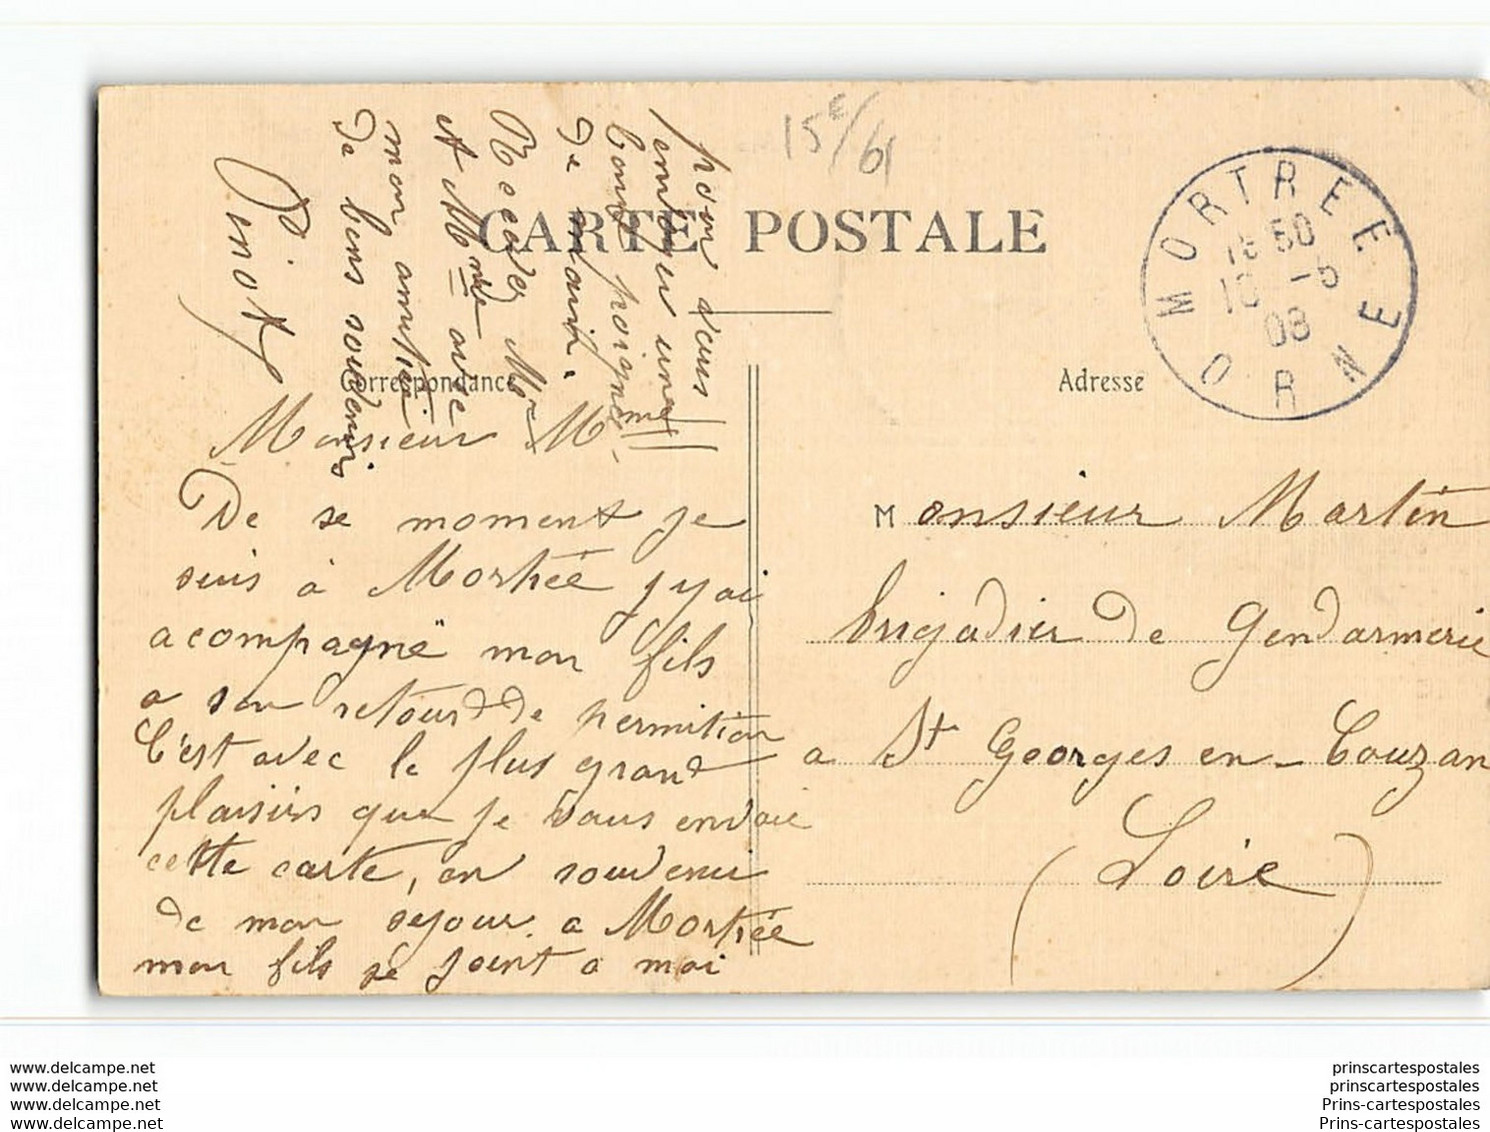 15E/61
CARTE POSTALE
Correspondance
Adresse
MORTREE
ORNE
18 50
10 -5
08
Monsieur Mme
De se moment je
suis à Mortrée j y ai
acompagné mon fils
a son retour de permition
C'est avec le plus grand
plaisirs que je vous envoie
cette carte, en souvenir
de mon séjour a Mortrée
mon fils se joint a moi
pour vous
envoyer une
bone poignée
de main.
Recever Mr
et Mme avec
mon amitié
de bons souvenirs
Pinot
Monsieur Martin
brigadier de Gendarmerie
a St Georges en-Couzan
(Loire)
www.delcampe.net
www.delcampe.net
www.delcampe.net
www.delcampe.net
prinscartespostales
prinscartespostales
Prins-cartespostales
Prins-cartespostales